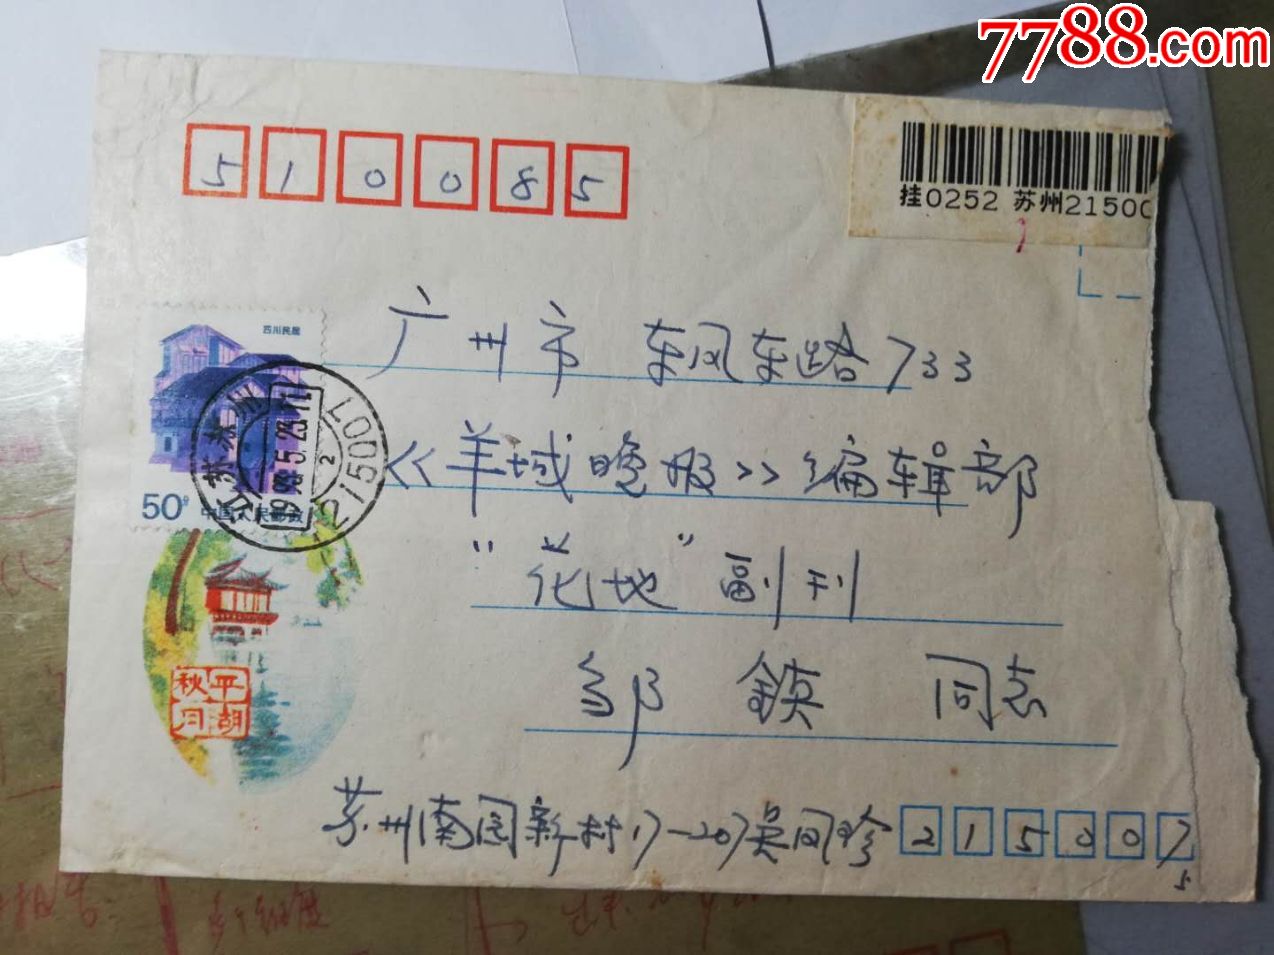 7788.com
510085
挂0252 苏州21500
四川民居
50分
中国人民邮政
江苏苏州
215007
广州市 东风东路733
《羊城晚报》编辑部
"花地"副刊
邹 鍈 同志
平湖
秋月
苏州南园新村17-207吴凤珍 215007